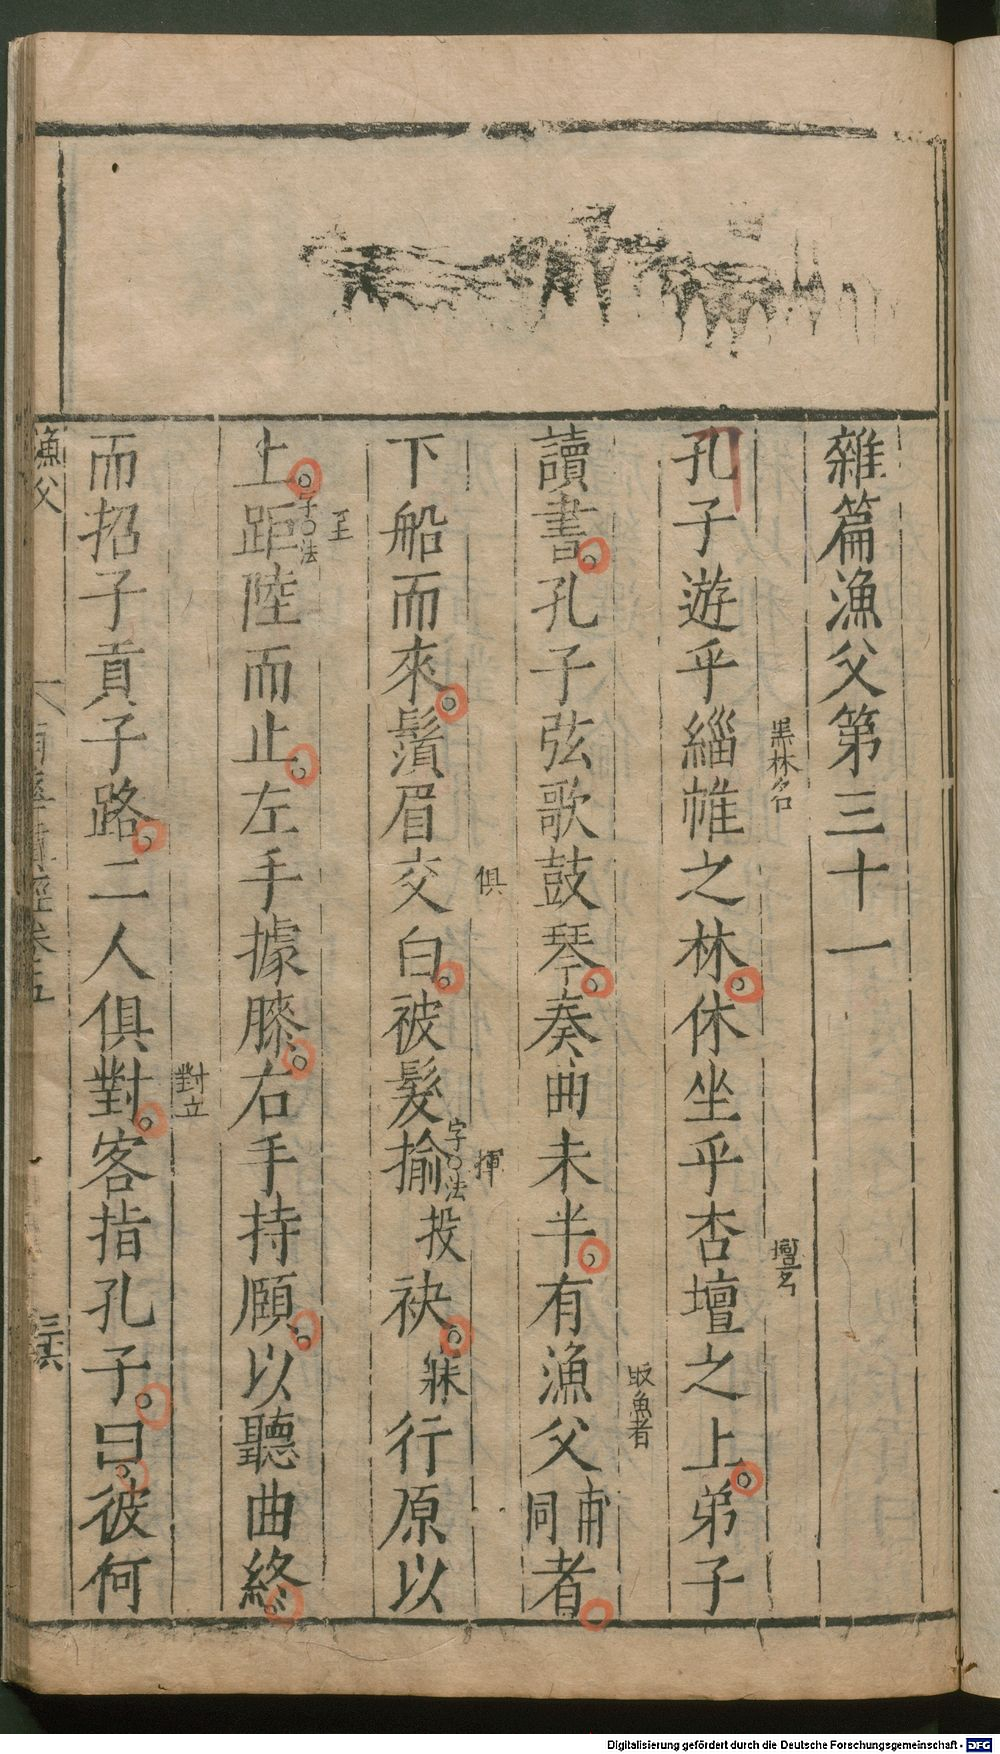 雜篇漁父第三十一
孔子遊乎緇帷之林。休坐乎杏壇之上。弟子
黑林名
壇名
讀書。孔子弦歌鼓琴。奏曲未半。有漁父甫同者。
取魚者
下船而來。鬚眉交白。被髮揄投袂。袜行原以
俱
字法
揮
上。距陸而止。左手據膝。右手持頤。以聽曲終。
字法
至
而招子貢子路。二人俱對。客指孔子。曰。彼何
對立
漁父
六
三六
Digitalisierung gefördert durch die Deutsche Forschungsgemeinschaft - DFG